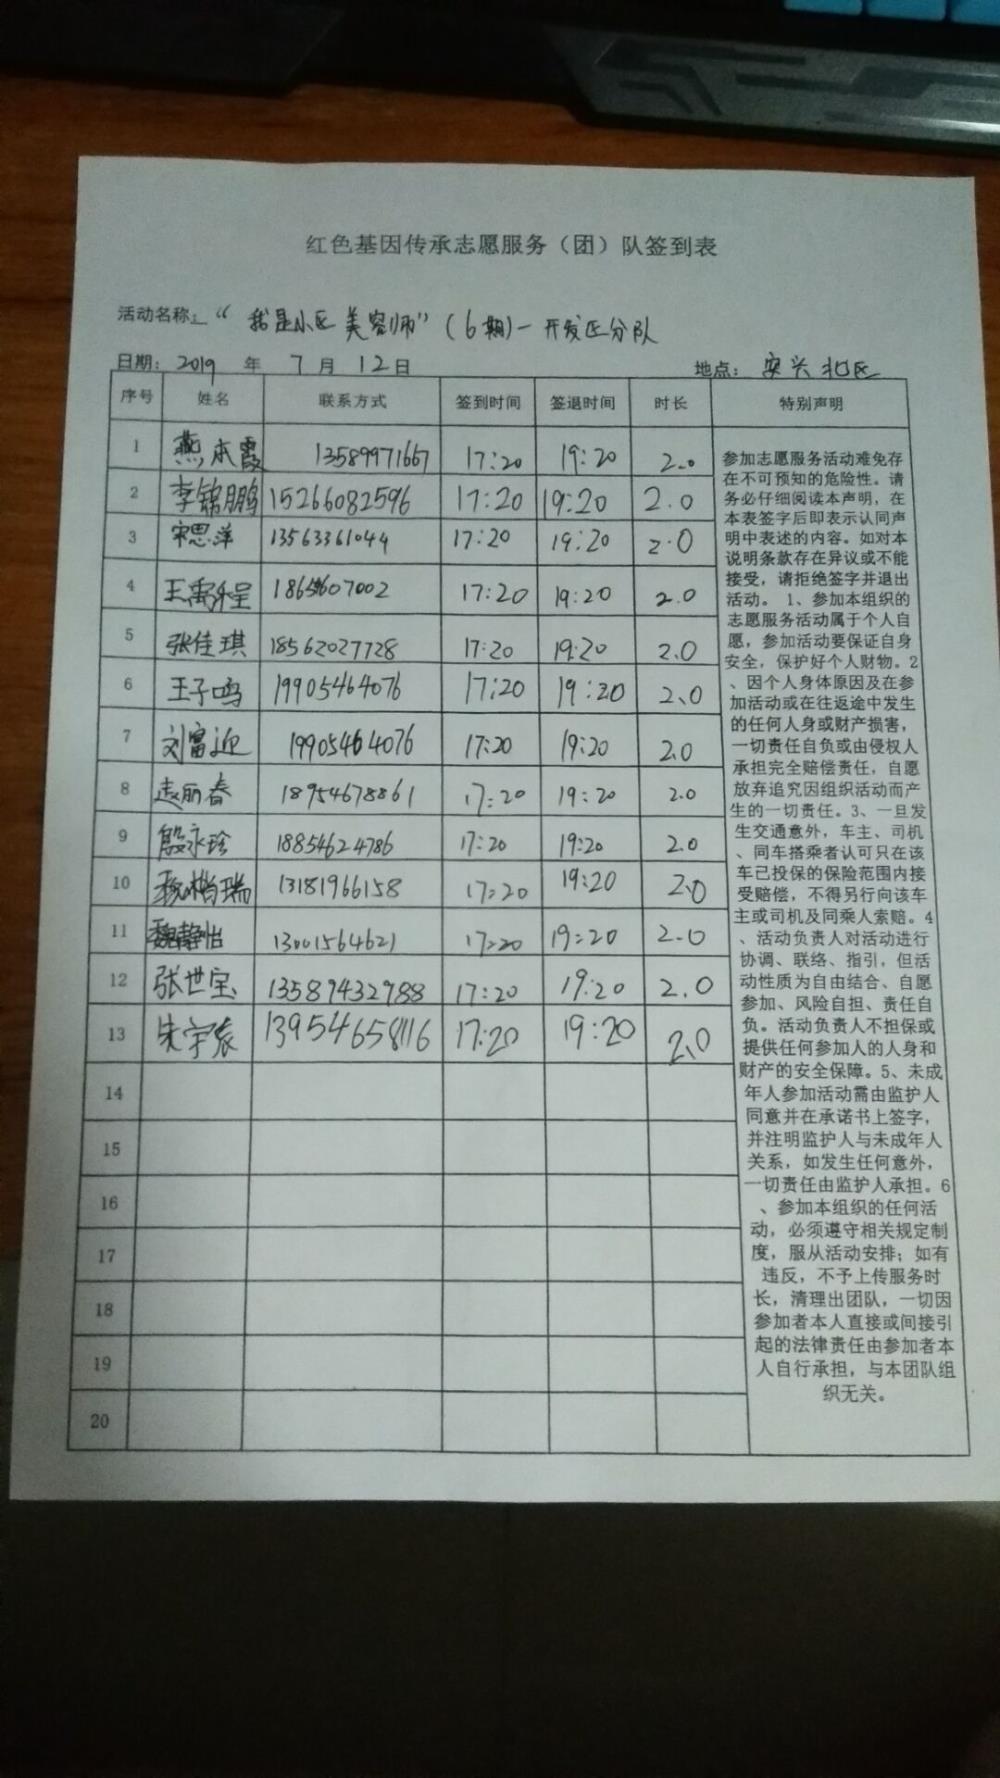 红色基因传承志愿服务（团）队签到表
活动名称：“我是小区美容师”（6期）－开发区分队
日期： 2019 年 7 月 12 日 地点： 安兴北区
序号 姓名 联系方式 签到时间 签退时间 时长 特别声明
1 燕本霞 13589971667 17:20 19:20 2.0
2 李锦鹏 15266082596 17:20 19:20 2.0
3 宋思萍 13563361044 17:20 19:20 2.0
4 17:20 19:20 2.0
5 张佳琪 18562027728 17:20 19:20 2.0
6 王子鸣 19905464076 17:20 19:20 2.0
7 刘富迎 19905464076 17:20 19:20 2.0
8 赵丽春 18954678861 17:20 19:20 2.0
9 殷永珍 18854624786 17:20 19:20 2.0
10 13181966158 17:20 19:20 2.0
11 魏静怡 13001564621 17:20 19:20 2.0
12 张世宝 13589432988 17:20 19:20 2.0
13 朱宇辰 13954658116 17:20 19:20 2.0
14
15
16
17
18
19
20
参加志愿服务活动难免存
在不可预知的危险性。请
务必仔细阅读本声明，在
本表签字后即表示认同声
明中表述的内容。如对本
说明条款存在异议或不能
接受，请拒绝签字并退出
活动。 1、参加本组织的
志愿服务活动属于个人自
愿，参加活动要保证自身
安全，保护好个人财物。2
、因个人身体原因及在参
加活动或在往返途中发生
的任何人身或财产损害，
一切责任自负或由侵权人
承担完全赔偿责任，自愿
放弃追究因组织活动而产
生的一切责任。3、一旦发
生交通意外，车主、司机
、同车搭乘者认可只在该
车已投保的保险范围内接
受赔偿，不得另行向该车
主或司机及同乘人索赔。4
、活动负责人对活动进行
协调、联络、指引，但活
动性质为自由结合、自愿
参加、风险自担、责任自
负。活动负责人不担保或
提供任何参加人的人身和
财产的安全保障。5、未成
年人参加活动需由监护人
同意并在承诺书上签字，
并注明监护人与未成年人
关系，如发生任何意外，
一切责任由监护人承担。6
、参加本组织的任何活
动，必须遵守相关规定制
度，服从活动安排；如有
违反，不予上传服务时
长，清理出团队，一切因
参加者本人直接或间接引
起的法律责任由参加者本
人自行承担，与本团队组
织无关。